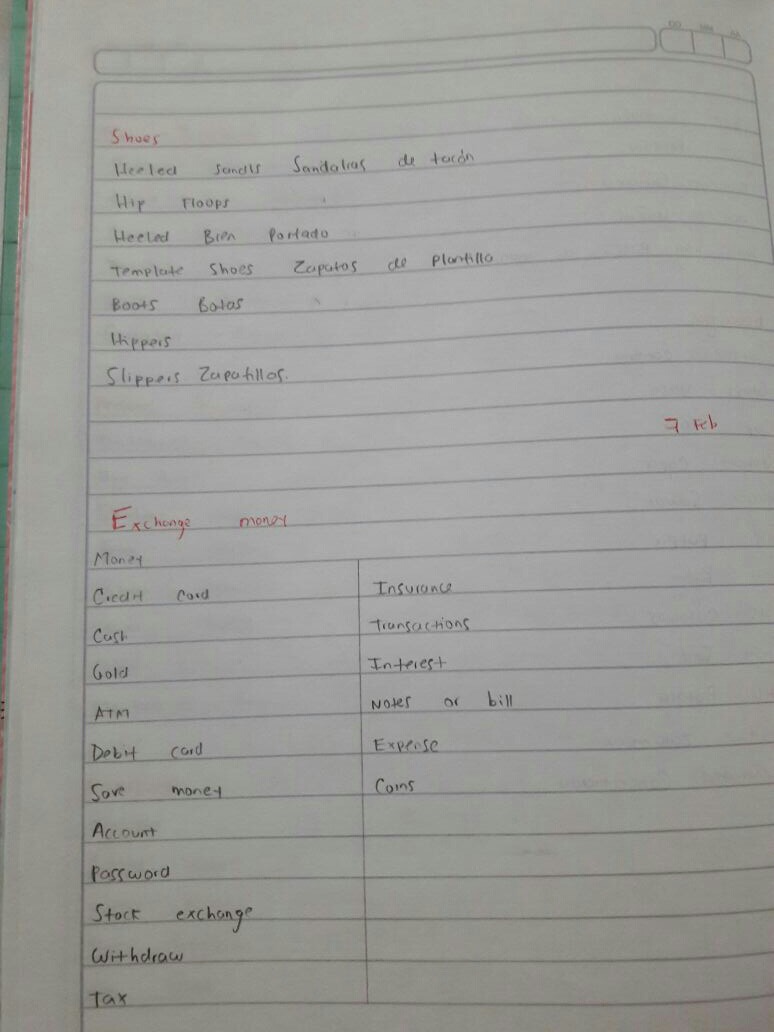 Shoes
Heeled sandls Sandalias de tacón
Hip Floops
Heeled Bien Portado
Template Shoes Zapatos de Plantilla
Boots Botas
Hippers
Slippers Zapatillas.
7 Feb
Exchange money
Money
Credit card
Cash
Gold
ATM
Debit card
Save money
Account
Password
Stock exchange
Withdraw
Tax
Insurance
Transactions
Interest
Notes or bill
Expense
Coins